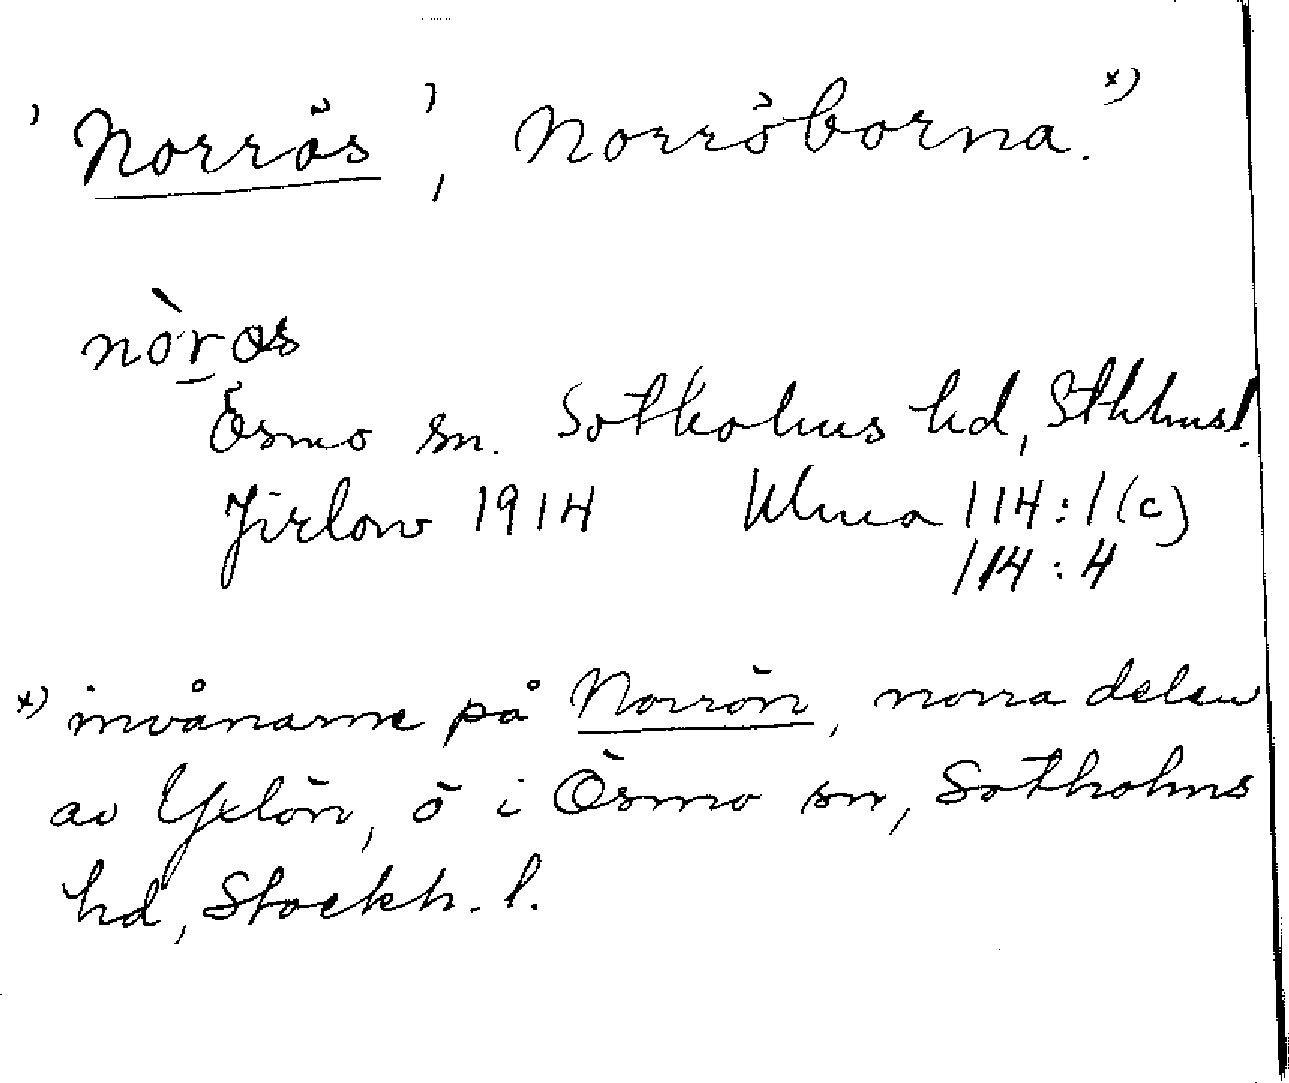 'Norrös', Norröborna. x)
nòr̲øs
Ösmo sn. Sotholms hd, Sthlms l.
Jirlow 1914 Ulma 114:1 (c)
114:4
x) invånarne på Norrön, norra delen
av Yxlön, ö i Ösmo sn, Sotholms
hd, Stockh. l.